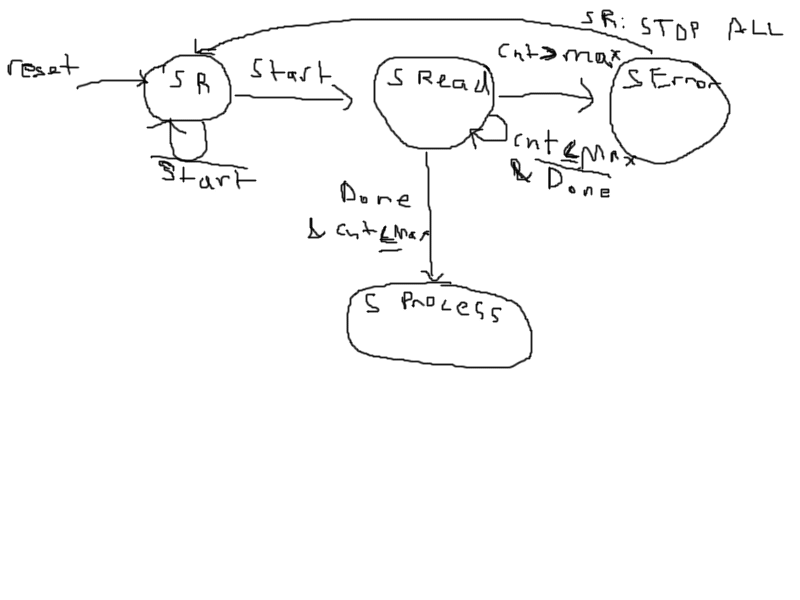 SR: STOP ALL
reset
SR
Start
S Read
Cnt>max
S Error
Start
cnt ≤ Max
& Done
Done
& cnt ≤ Max
S Process